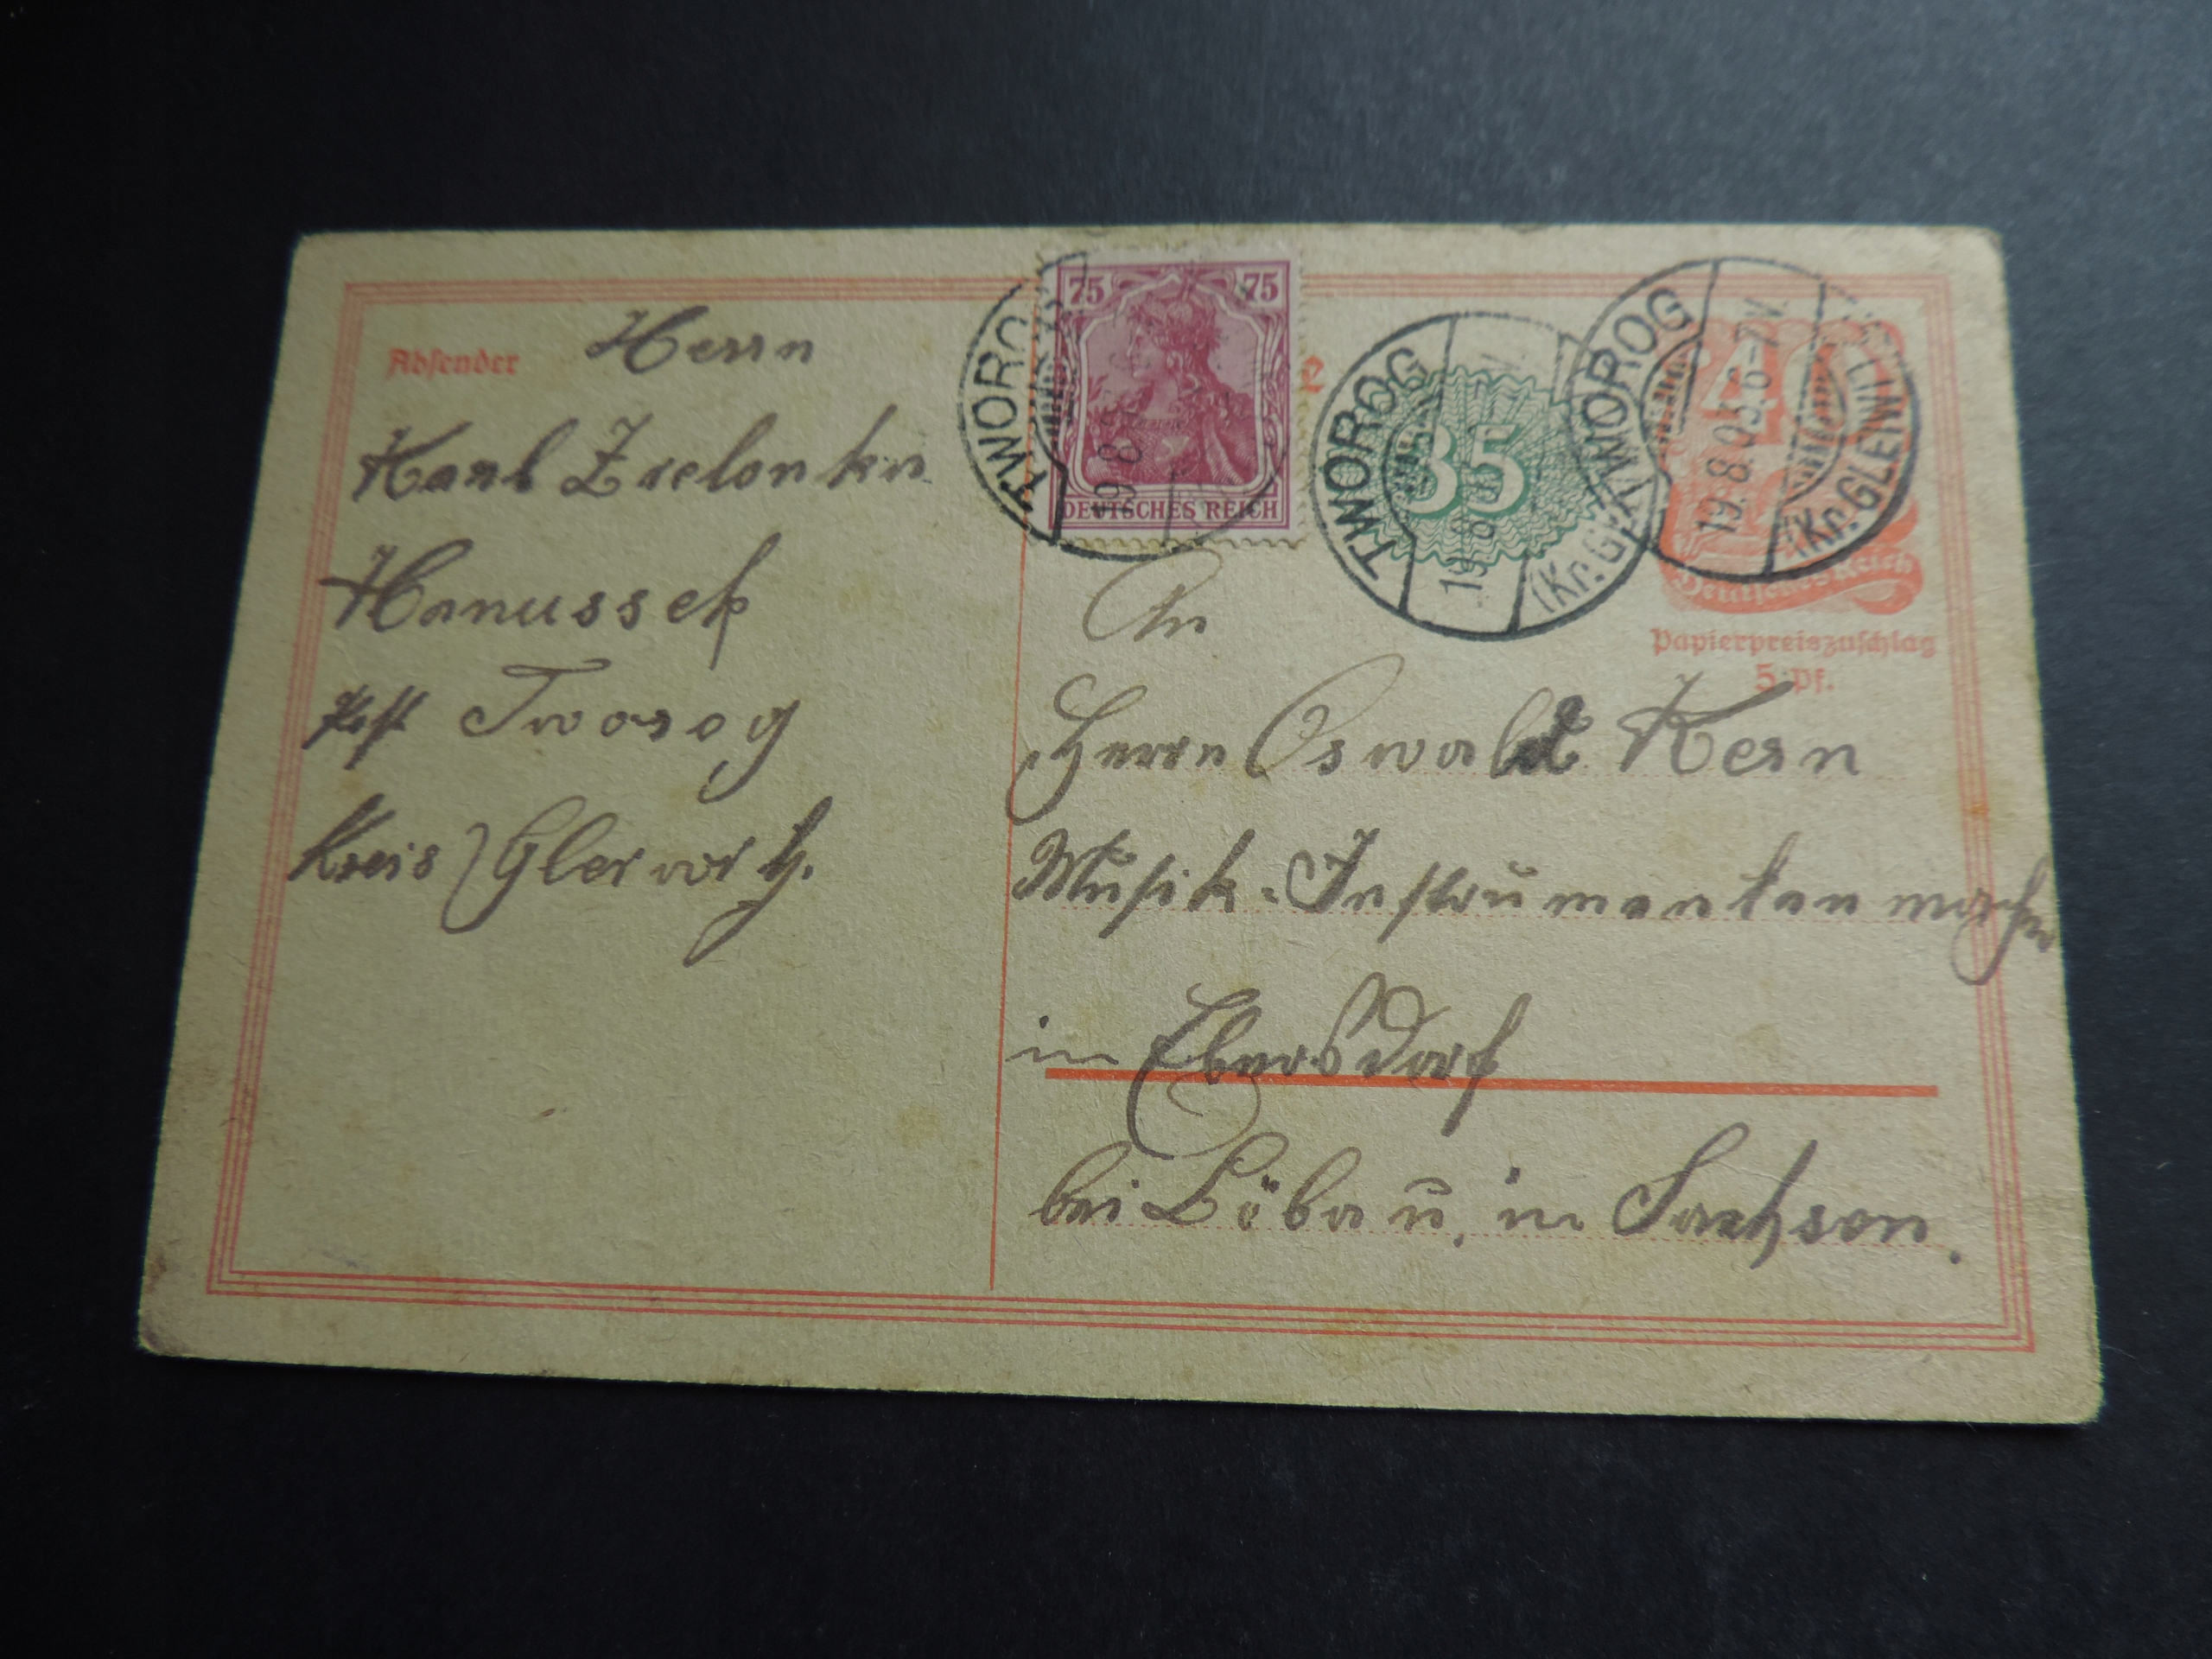 Absender Herrn
Karl Zielonka
Hanussek
Post Tworog
Kreis Gleiwitz.
75 75
DEUTSCHES REICH
TWOROG
19 8
35
TWOROG
19. 8
(Kr. GLEIWITZ)
40
Deutsches Reich
TWOROG
19. 8. 03. 6-7V.
(Kr. GLEIWITZ)
Papierpreiszuschlag
5 Pf.
An
Herrn Oswald Kern
Musik-Instrumentenmacher
in Ebersdorf
bei Löbau, in Sachsen.